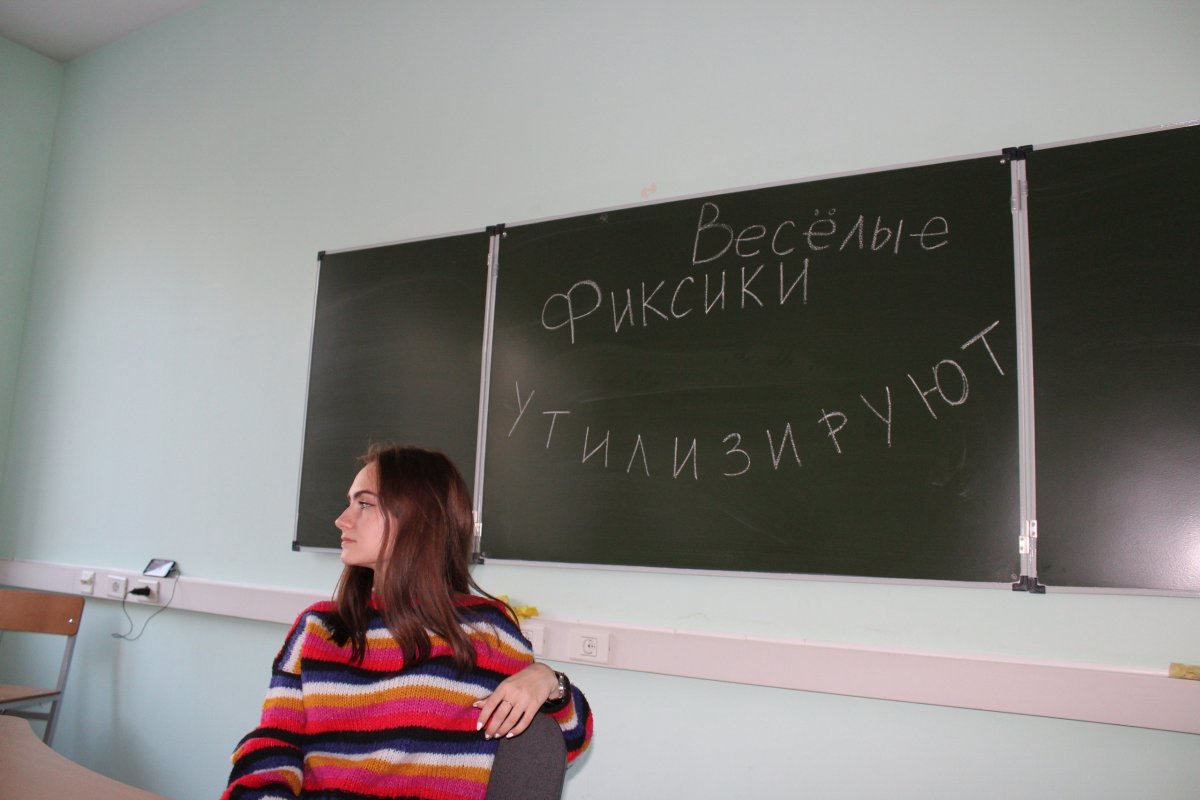 Весёлые
Фиксики
УТИЛИЗИРУЮТ